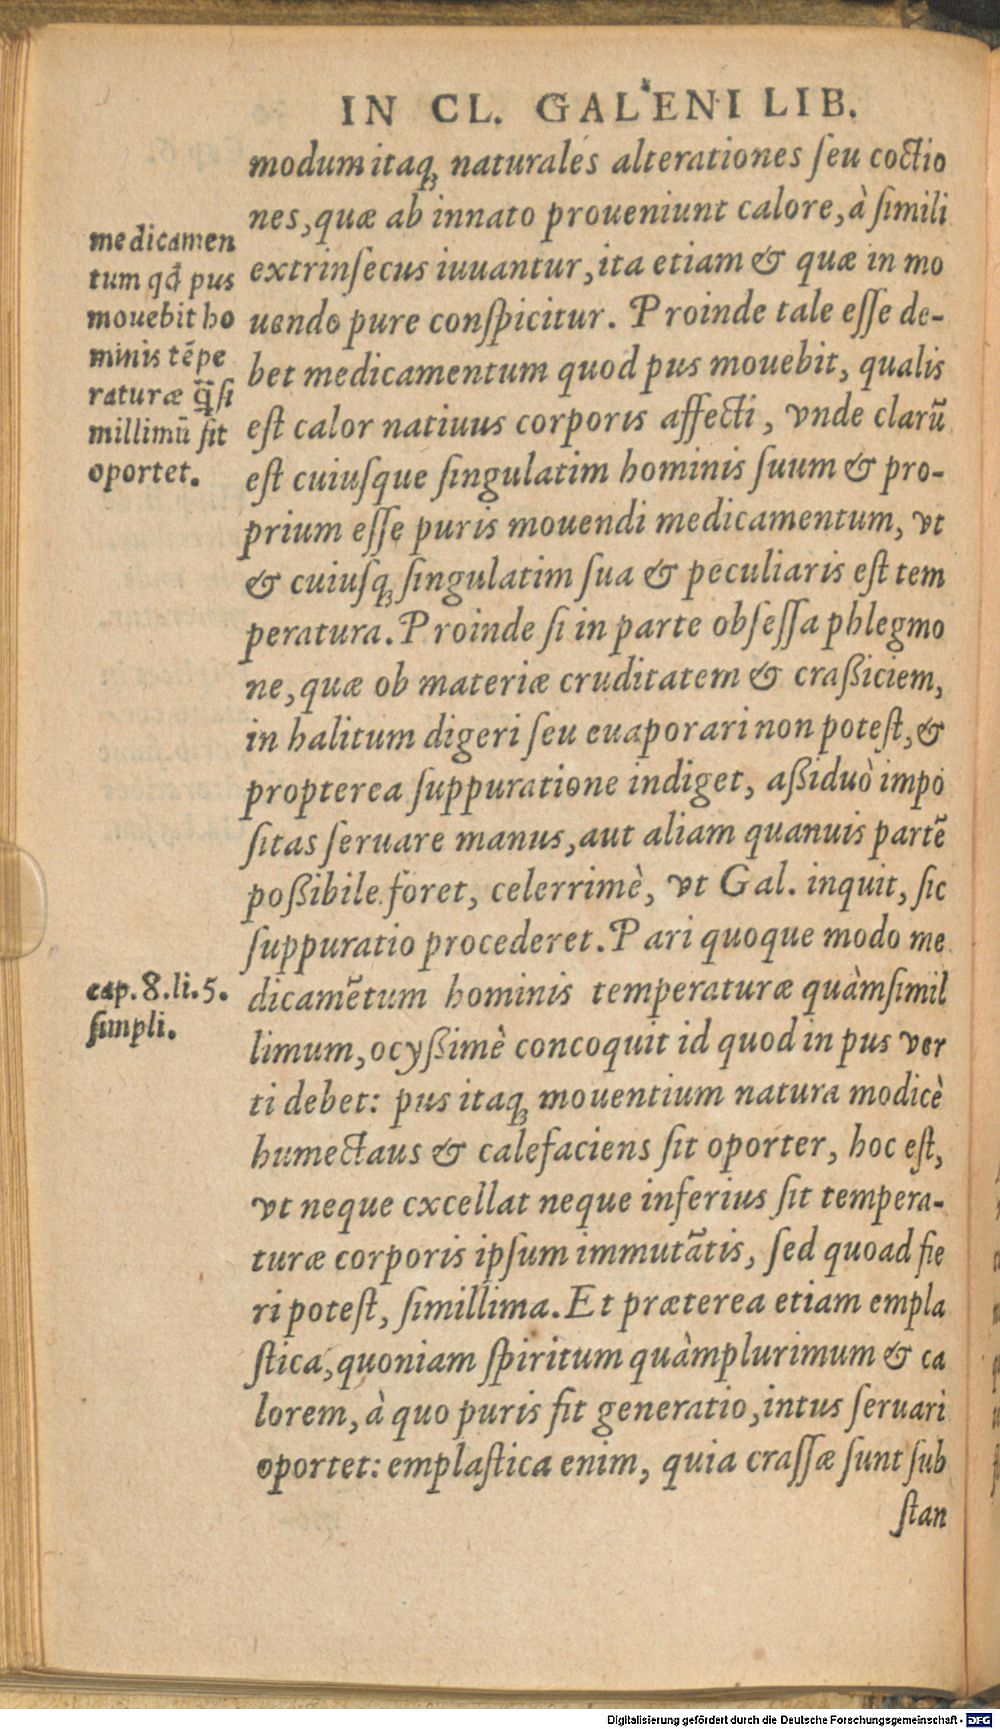 IN CL. GALENI LIB.
modum itaq; naturales alterationes ſeu coctio
nes, quæ ab innato proueniunt calore, à ſimili
extrinſecus iuuantur, ita etiam & quæ in mo
uendo pure conſpicitur. Proinde tale eſſe de-
bet medicamentum quod pus mouebit, qualis
eſt calor natiuus corporis affecti, vnde clarū
eſt cuiuſque ſingulatim hominis ſuum & pro-
prium eſſe puris mouendi medicamentum, vt
& cuiuſq; ſingulatim ſua & peculiaris eſt tem
peratura. Proinde ſi in parte obſeſſa phlegmo
ne, quæ ob materiæ cruditatem & craßiciem,
in halitum digeri ſeu euaporari non poteſt, &
propterea ſuppuratione indiget, aßiduò impo
ſitas ſeruare manus, aut aliam quanuis partē
poßibile foret, celerrimè, vt Gal. inquit, ſic
ſuppuratio procederet. Pari quoque modo me
dicamētum hominis temperaturæ quàmſimil
limum, ocyßimè concoquit id quod in pus ver
ti debet: pus itaq; mouentium natura modicè
humectaus & calefaciens ſit oporter, hoc eſt,
vt neque excellat neque inferius ſit tempera-
turæ corporis ipſum immutātis, ſed quoad fie
ri poteſt, ſimillima. Et præterea etiam empla
ſtica, quoniam ſpiritum quàmplurimum & ca
lorem, à quo puris fit generatio, intus ſeruari
oportet: emplaſtica enim, quia craſſæ ſunt ſub
ſtan
medicamen
tum qď pus
mouebit ho
minis tēpe
raturæ q̄ſi
millimū ſit
oportet.
cap. 8. li. 5.
ſimpli.
Digitalisierung gefördert durch die Deutsche Forschungsgemeinschaft - DFG